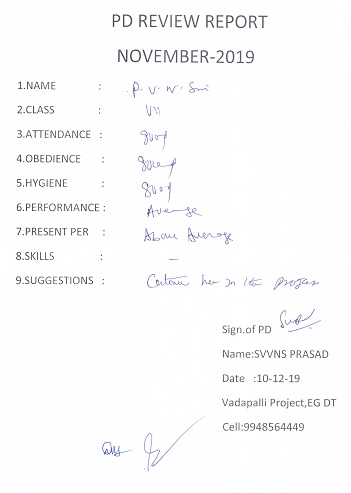 PD REVIEW REPORT
NOVEMBER-2019
1.NAME : P. V. N. Sri
2.CLASS : VII
3.ATTENDANCE : good
4.OBEDIENCE : good
5.HYGIENE : good
6.PERFORMANCE : Average
7.PRESENT PER : Above Average
8.SKILLS : –
9.SUGGESTIONS : Continue her in the program
Sign.of PD
Name:SVVNS PRASAD
Date :10-12-19
Vadapalli Project,EG DT
Cell:9948564449